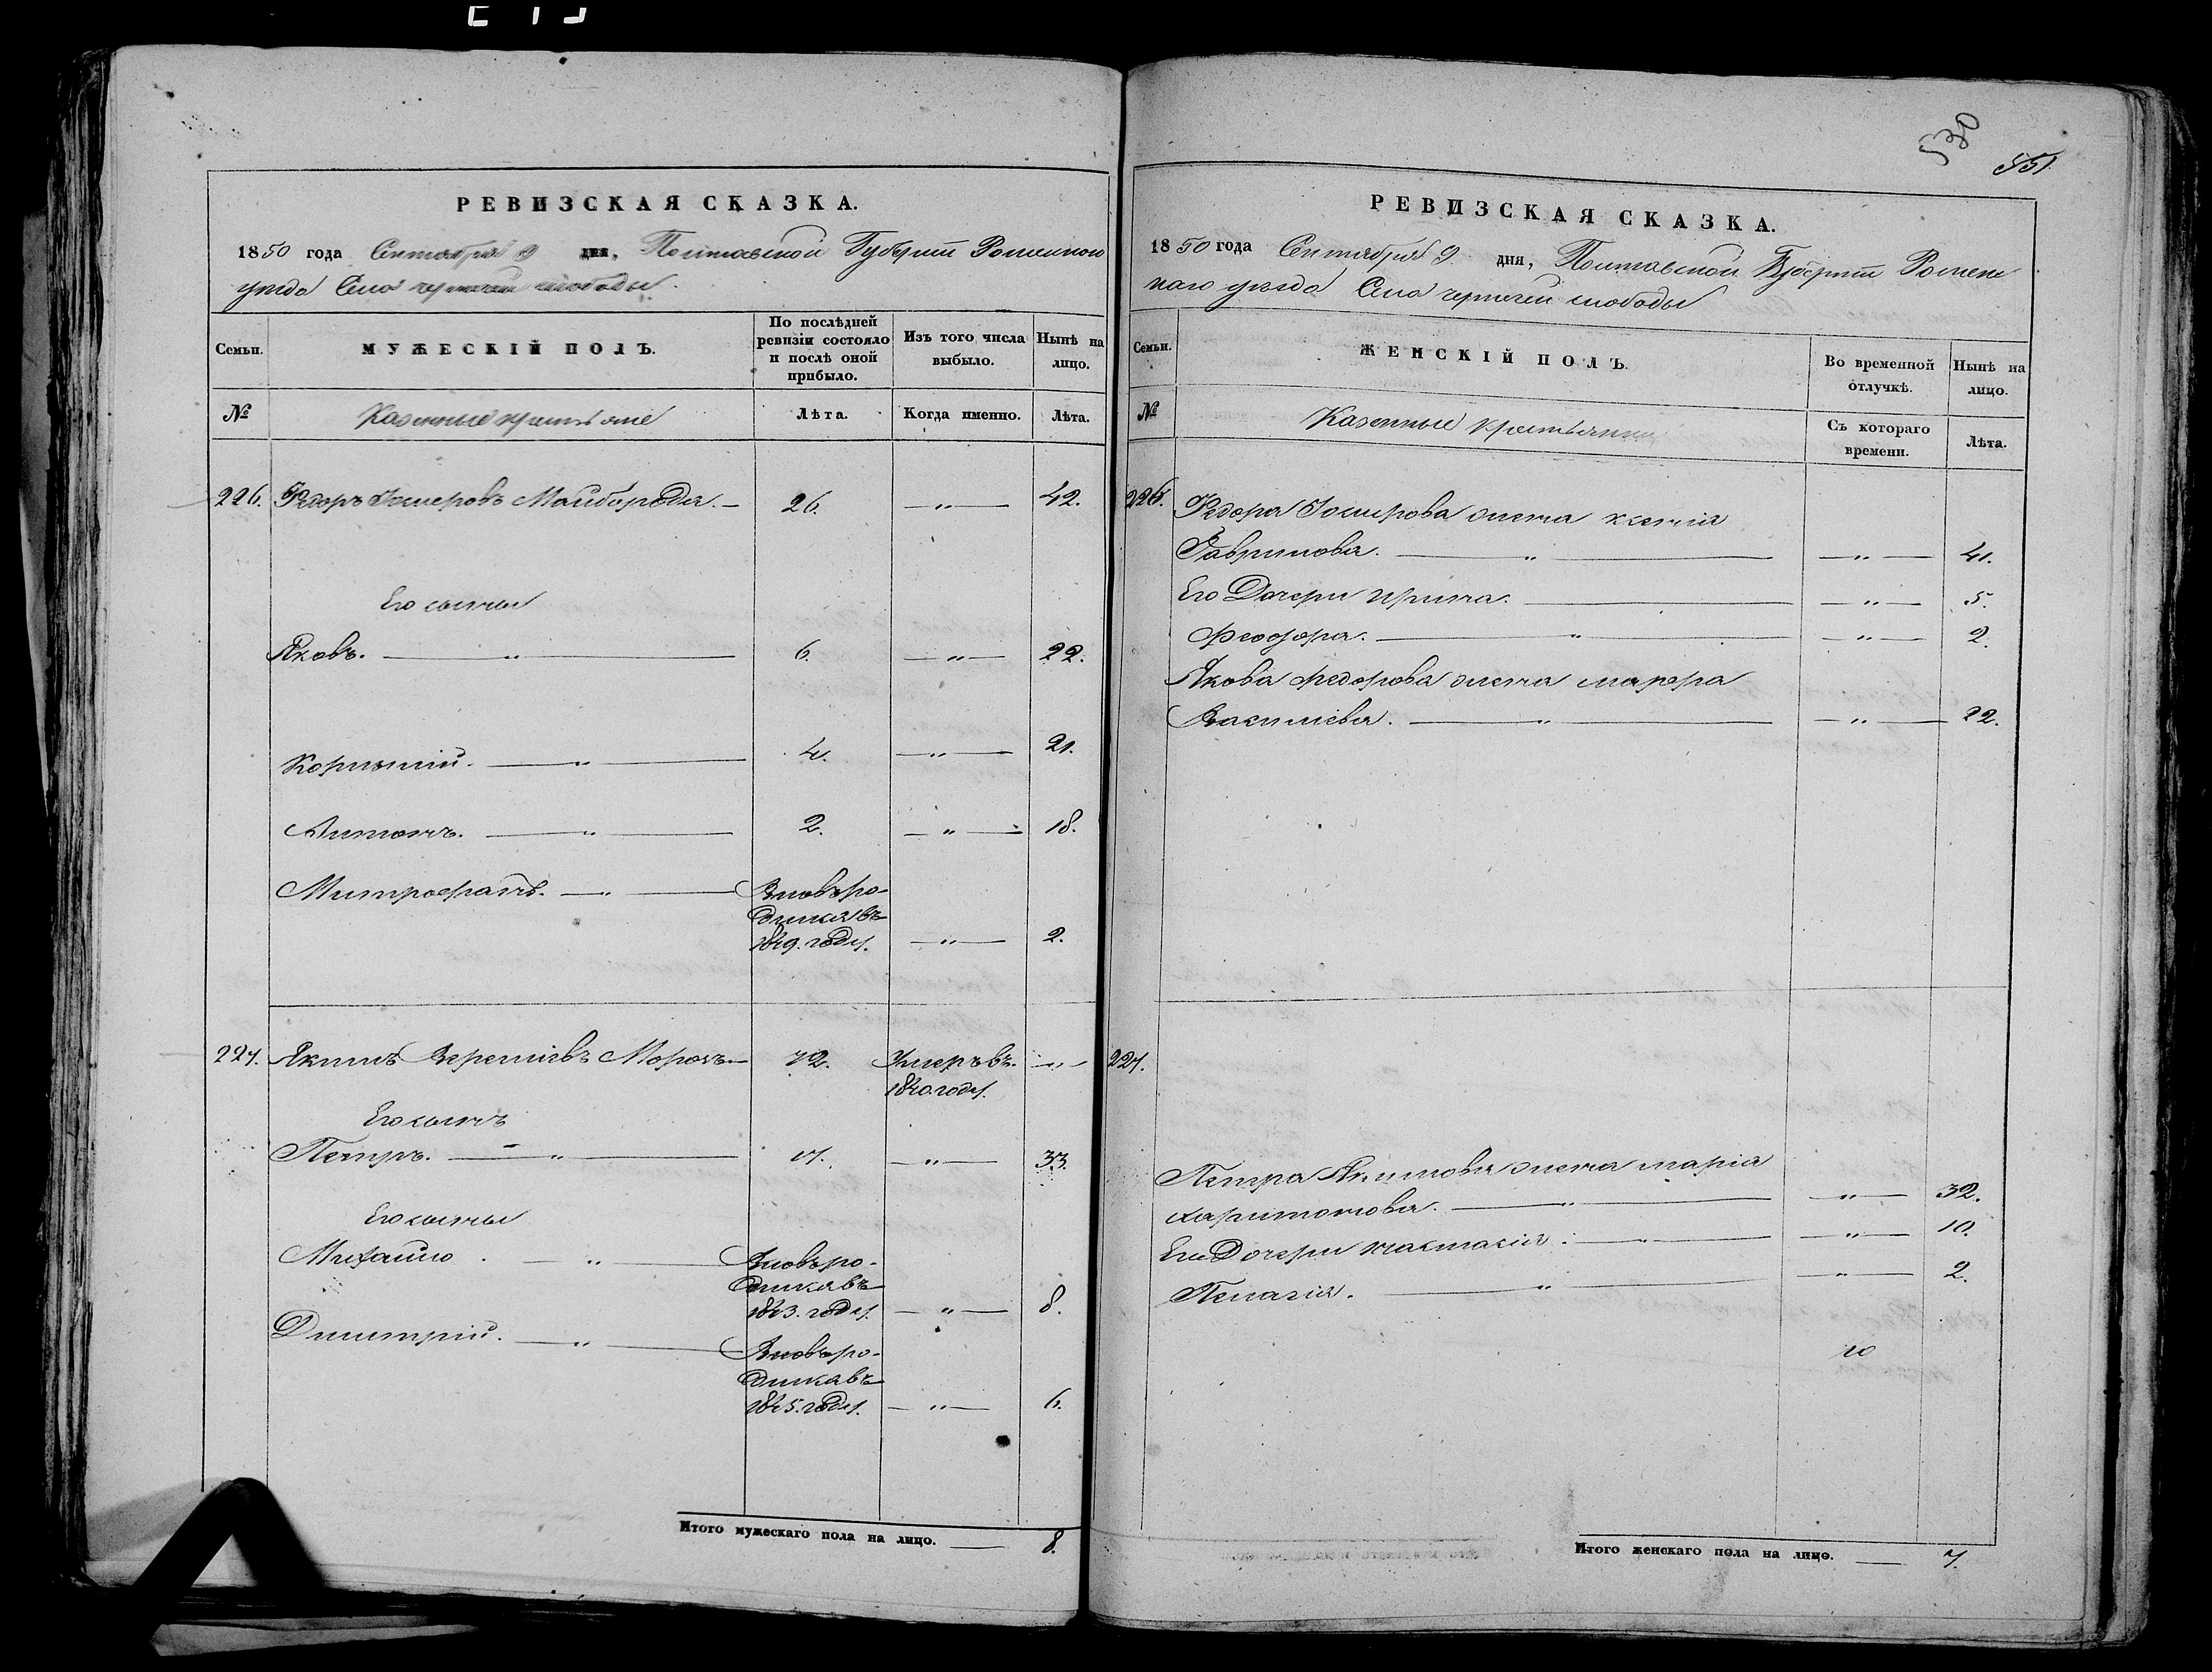 РЕВИЗСКАЯ СКАЗКА.
1850 года Сентября 9 дня, Полтавской Губерніи Роменского
уезда Села чернечей слободы.
Семьи.
МУЖЕСКІЙ ПОЛЪ.
По послѣдней
ревизіи состояло
и послѣ оной
прибыло.
Изъ того числа
выбыло.
Нынѣ на
лицо.
№
Казенные крестьяне
Лѣта.
Когда именно.
Лѣта.
226. Федоръ Майборода. — 26. — „ — 42.
Его сыны
Яковъ. — „ — 6. — „ — 22.
Корнилій. — „ — 4. — „ — 21.
Антонъ. — „ — 2. — „ — 18.
Митрофанъ. — „ — Вновь ро-
дился въ
1849. году. — „ — 2.
227. Якимъ Верем Морозъ — 72. Умеръ въ — „ —
1840. году.
Его сынъ
Петръ. — „ — 17. — „ — 33.
Его сыны
Михайло. — „ — Вновь ро-
дился въ
1843. году. — „ — 8.
Дмитрій. — „ — Вновь ро-
дился въ
1845. году. — „ — 6.
Итого мужескаго пола на лицо. — 8.
530
551
РЕВИЗСКАЯ СКАЗКА.
1850 года Сентября 9. дня, Полтавской Губерніи Ромен
наго уезда Села чернечей слободы
Семьи.
ЖЕНСКІЙ ПОЛЪ.
Во временной
отлучкѣ.
Нынѣ на
лицо.
№
Казенные крестьянки
Съ котораго
времени.
Лѣта.
226. Федора жена ксенія
Гаврилова. — „ — — „ — 41.
Его Дочери Ирина. — — „ — 5.
Феодора. — „ — — „ — 2.
Якова Федорова жена марфа
Василіева. — „ — — „ — 22.
227.
Петра Якимова жена марія
харитонова. — „ — — „ — 32.
Его Дочери настасія. — „ — — „ — 10.
Пелагія. — „ — — „ — 2.
Итого женскаго пола на лице. — 7.